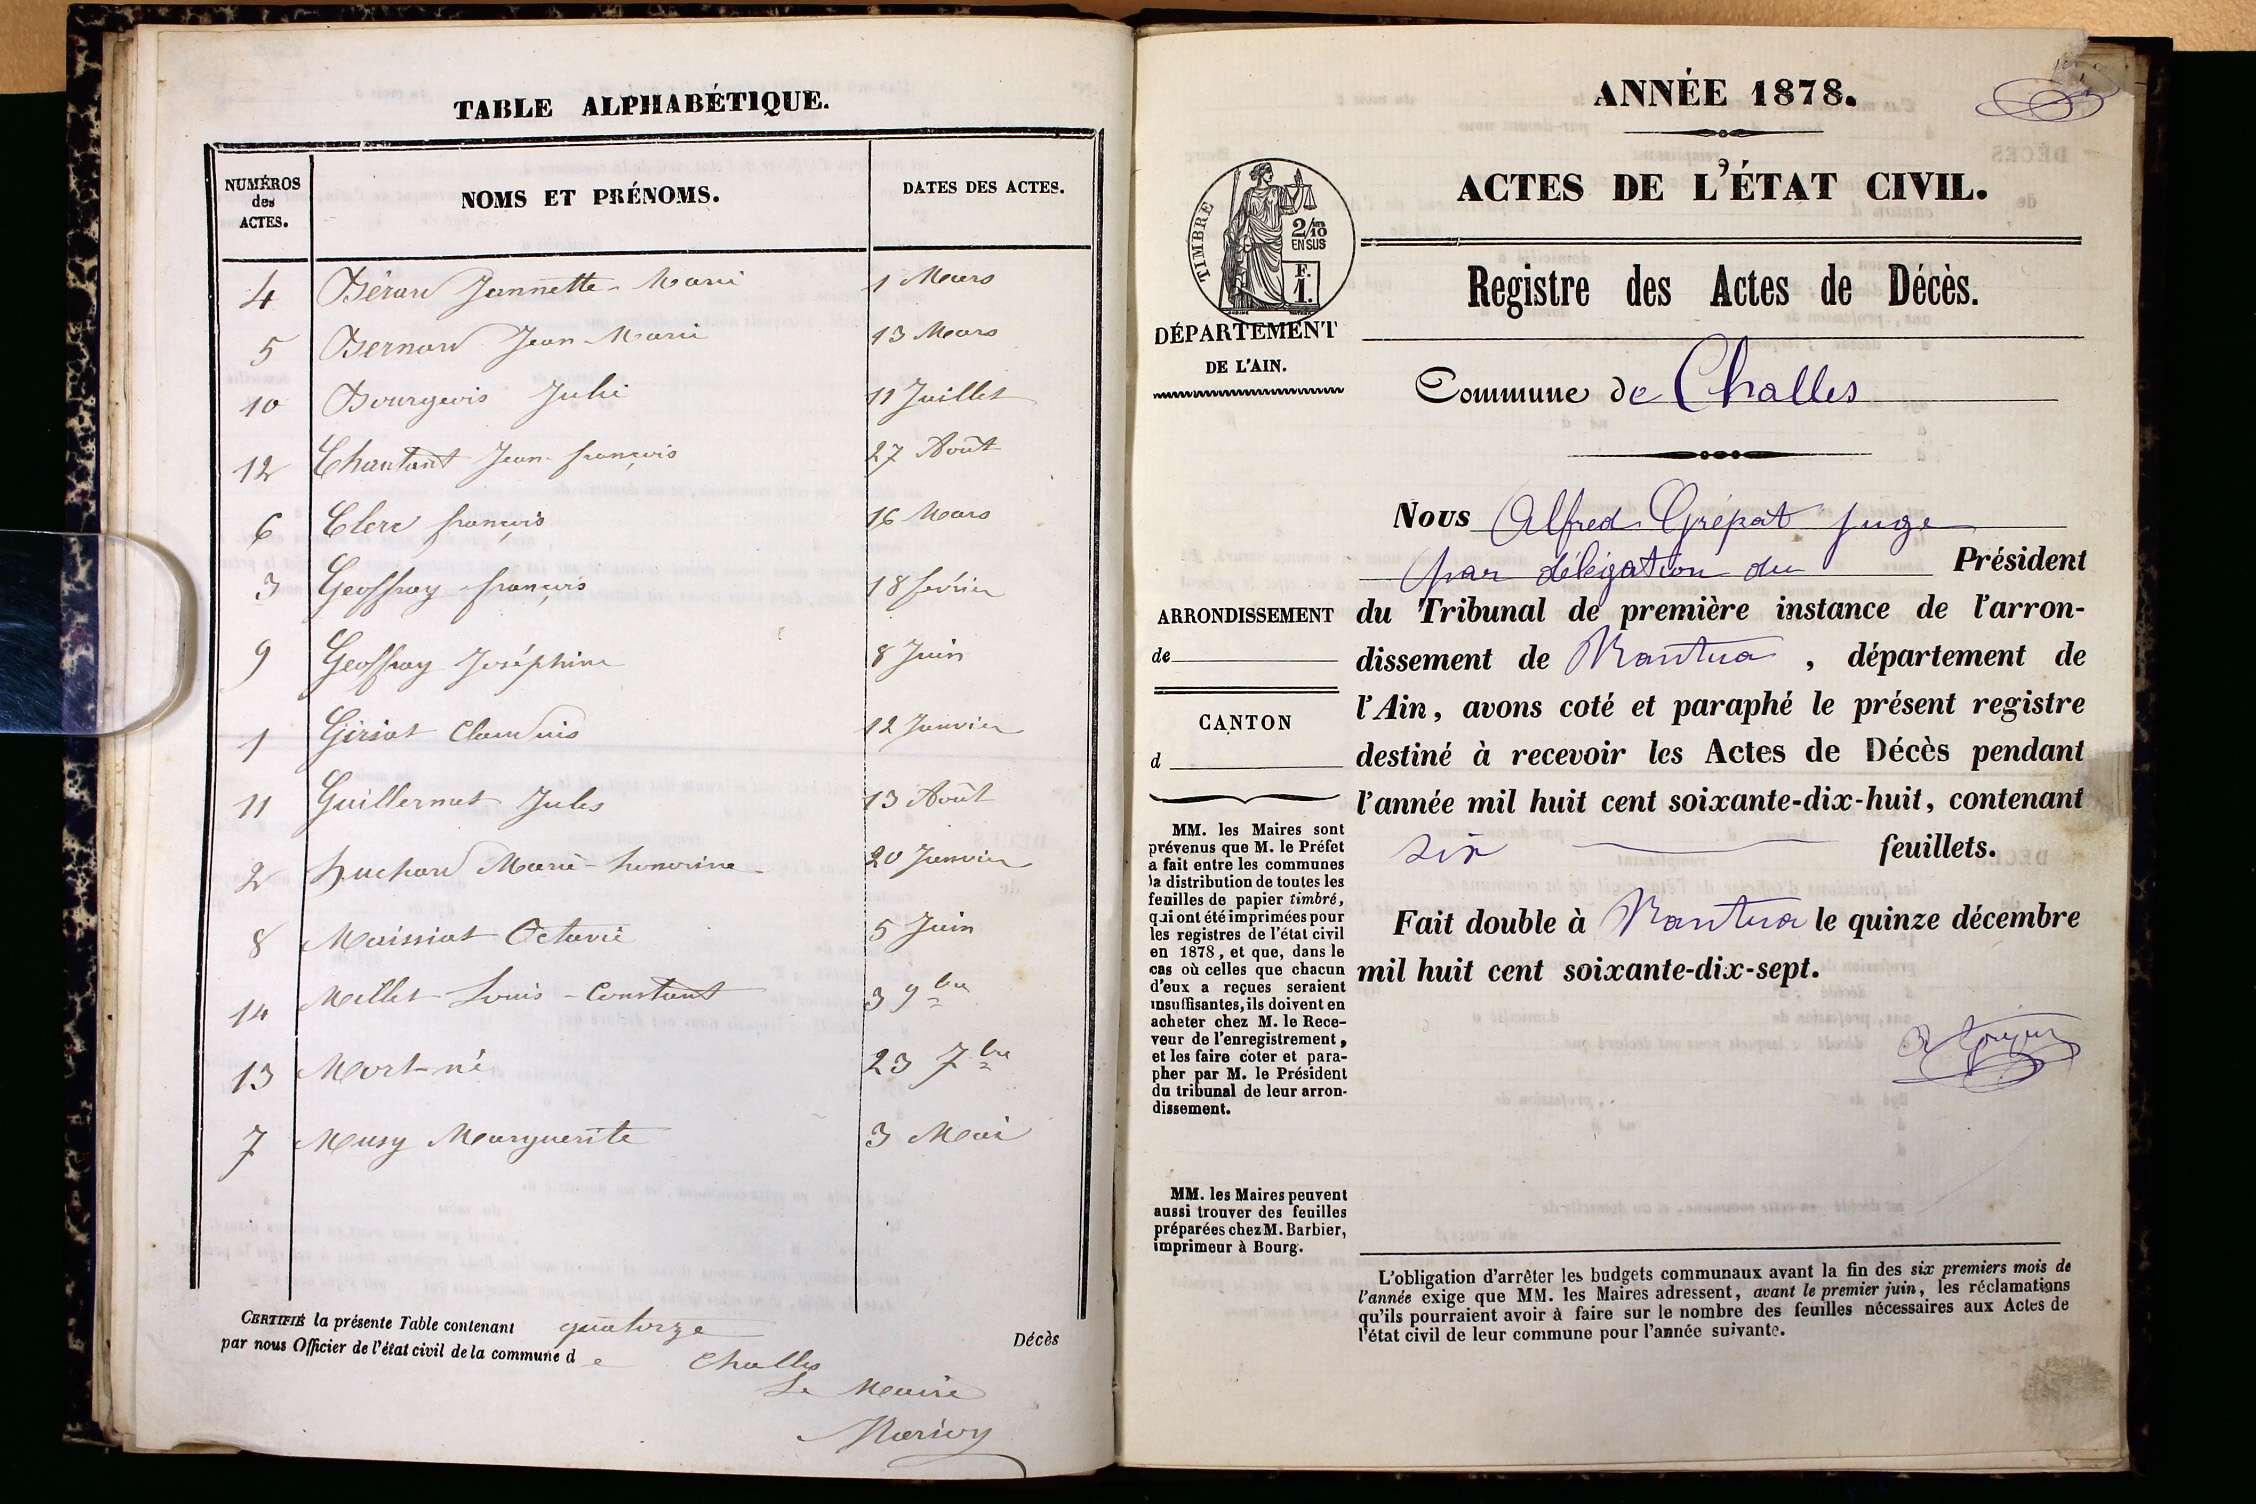 TABLE ALPHABÉTIQUE.
NUMÉROS des ACTES. NOMS ET PRÉNOMS. DATES DES ACTES.
4 Bérard Jeannette-Marie 1 Mars
5 Bernard Jean-Marie 13 Mars
10 Bourgeois Julie 11 Juillet
12 Chantant Jean-françois 27 Août
6 Clerc françois 16 Mars
3 Geoffray françois 18 février
9 Geoffray Joséphine 8 Juin
1 Giriat Claudius 12 Janvier
11 Guillermet Jules 13 Août
2 Huchard Marie-honorine 20 Janvier
8 Maissiat Octavie 5 Juin
14 Millet Louis-Constant 3 9bre
13 Mort-né 23 7bre
7 Musy Marguerite 3 Mai
CERTIFIÉ la présente Table contenant quatorze Décès
par nous Officier de l'état civil de la commune d e Challes
Le Maire
ANNÉE 1878.
ACTES DE L'ÉTAT CIVIL.
TIMBRE
2/10 EN SUS
F. 1.
DÉPARTEMENT
DE L'AIN.
Registre des Actes de Décès.
Commune de Challes
Nous Alfred Grépat juge
par délégation du Président
du Tribunal de première instance de l'arron-
dissement de Nantua, département de
l'Ain, avons coté et paraphé le présent registre
destiné à recevoir les Actes de Décès pendant
l'année mil huit cent soixante-dix-huit, contenant
six feuillets.
Fait double à Nantua le quinze décembre
mil huit cent soixante-dix-sept.
ARRONDISSEMENT
de
CANTON
d
MM. les Maires sont
prévenus que M. le Préfet
a fait entre les communes
la distribution de toutes les
feuilles de papier timbré,
qui ont été imprimées pour
les registres de l'état civil
en 1878, et que, dans le
cas où celles que chacun
d'eux a reçues seraient
insuffisantes, ils doivent en
acheter chez M. le Rece-
veur de l'enregistrement,
et les faire coter et para-
pher par M. le Président
du tribunal de leur arron-
dissement.
MM. les Maires peuvent
aussi trouver des feuilles
préparées chez M. Barbier,
imprimeur à Bourg.
L'obligation d'arrêter les budgets communaux avant la fin des six premiers mois de
l'année exige que MM. les Maires adressent, avant le premier juin, les réclamations
qu'ils pourraient avoir à faire sur le nombre des feuilles nécessaires aux Actes de
l'état civil de leur commune pour l'année suivante.